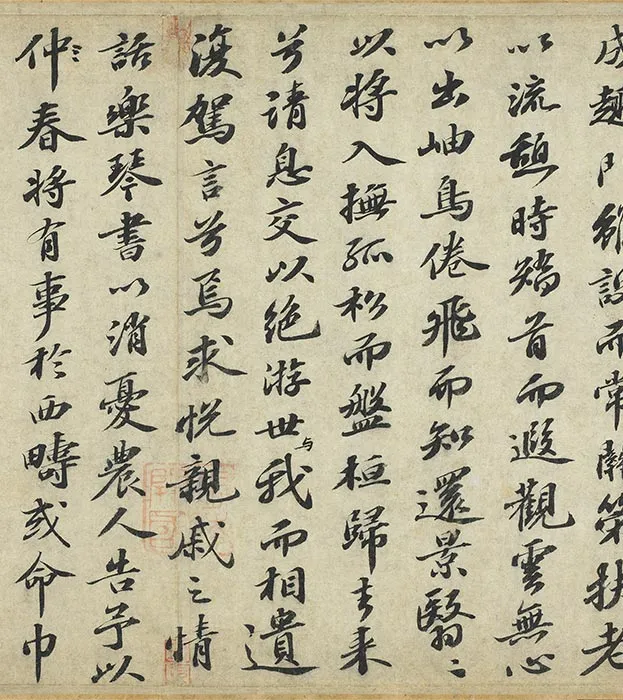 成趣門雖設而常關策扶老
以流憩時矯首而遐觀雲無心
以出岫鳥倦飛而知還景翳〻
以將入撫孤松而盤桓歸去来
兮請息交以絕游世与我而相遺
復駕言兮焉求悅親戚之情
話樂琴書以消憂農人告予以
仲春將有事於西疇或命巾